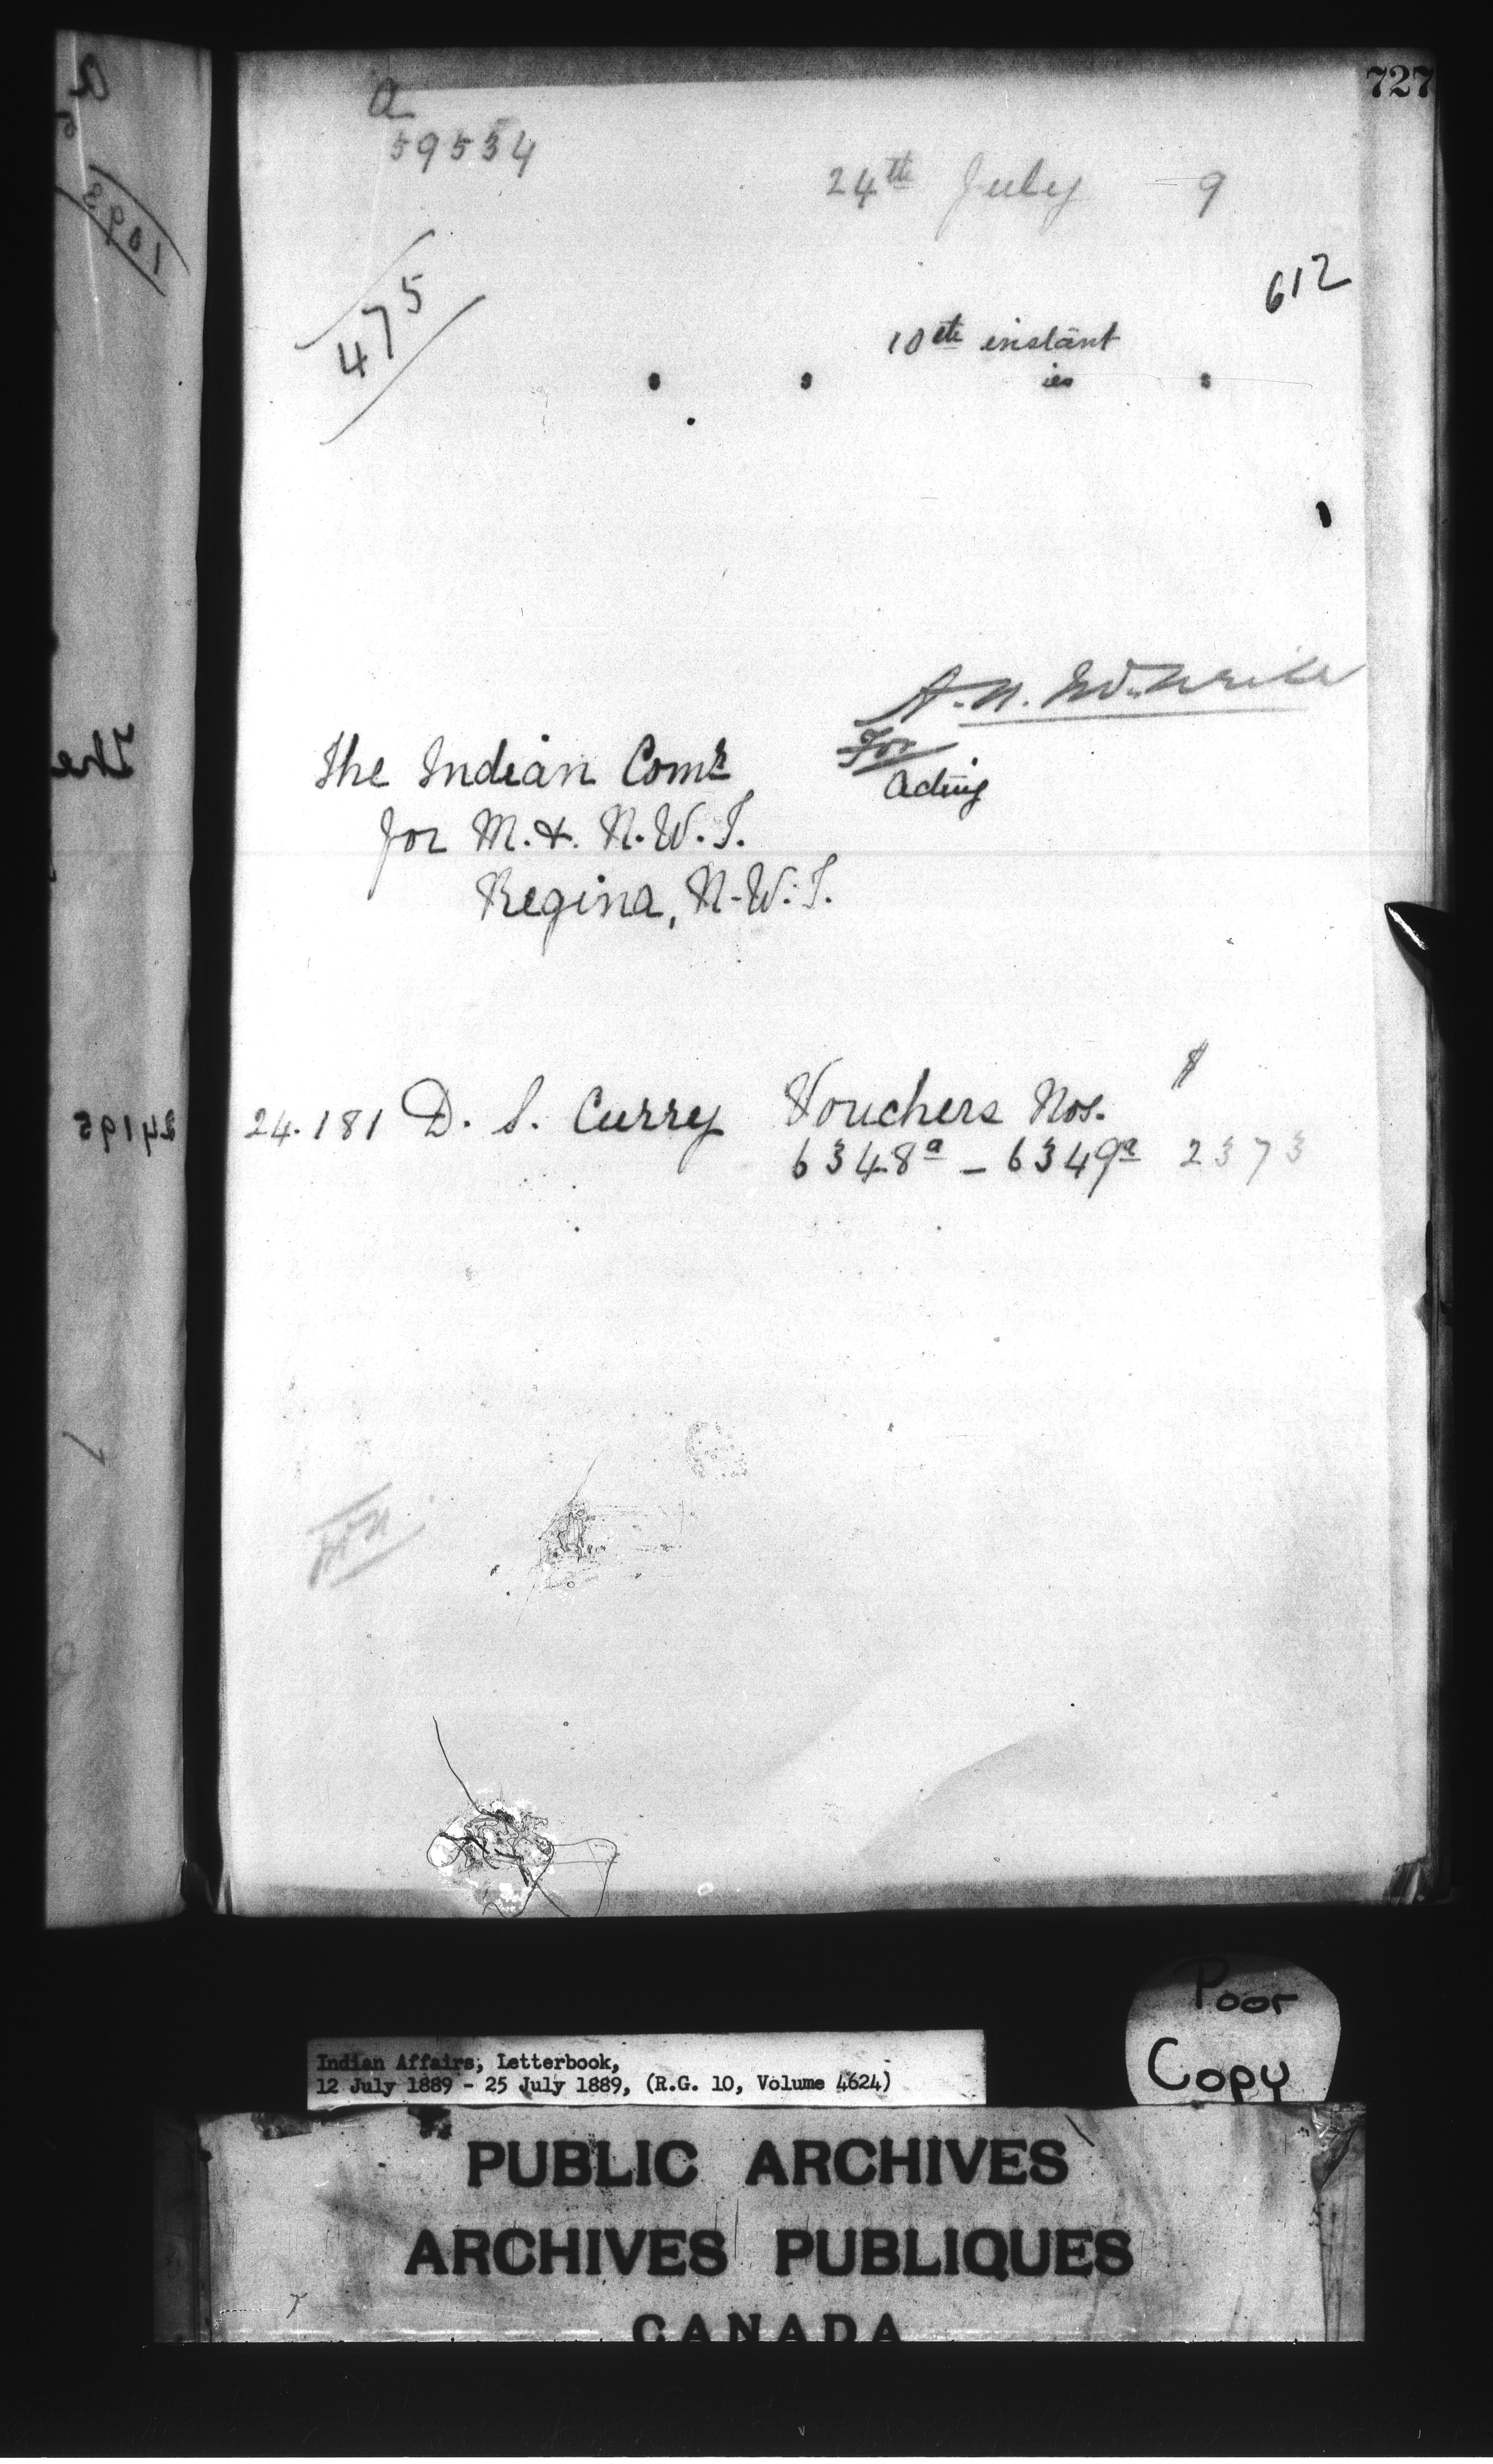 727
a
59534
24th July 9
612
475
10th instant
ies
A. N. McNeill
For
Acting
The Indian Comr
for M. & N.W.T.
Regina, N.W.T.
$
24.181 D. S. Curry Vouchers Nos.
6348a - 6349a 2373
Poor
Copy
Indian Affairs, Letterbook,
12 July 1889 - 25 July 1889, (R.G. 10, Volume 4624)
PUBLIC ARCHIVES
ARCHIVES PUBLIQUES
CANADA